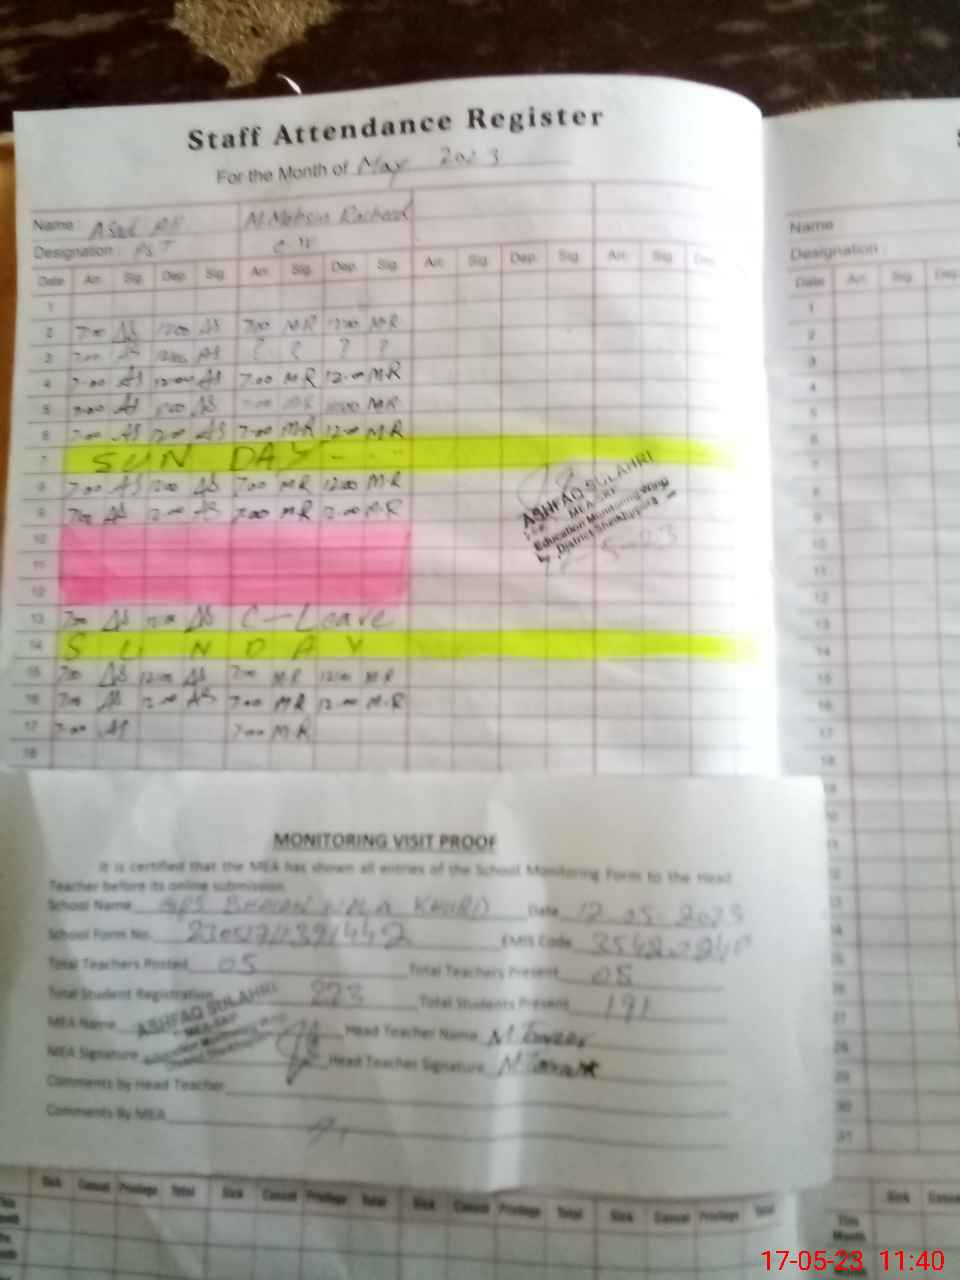 Staff Attendance Register
For the Month of May 2023
Name : Asad Ali M. Mohsin Rasheed
Name :
Designation : PST
Designation :
Date Arr. Sig. Dep. Sig. Arr. Sig. Dep. Sig. Arr. Sig. Dep. Sig. Arr. Sig. Dep.
Date Arr. Sig. Dep.
1
2 700 AS 1200 AS 700 MR 1200 MR
3 700 AS 1200 AS ? ? ? ?
4 7-00 AS 12-00 AS 7.00 MR 12-00 MR
5 7-00 AS 1200 AS 700 MR 1200 MR
6 7-00 AS 12-00 AS 7-00 MR 12-00 MR
7 SUN DAY
8 700 AS 1200 AS 700 MR 1200 MR
9 700 AS 12-00 AS 700 MR 12-00 MR
10
11
12
13 700 AS 12-00 AS C-Leave
14 S U N D A Y
15 700 AS 12-00 AS 700 MR 1200 MR
16 700 AS 12-00 AS 700 MR 12-00 MR
17 7-00 AS 7-00 MR
18
ASHFAQ SULAHRI
Education Monitoring Wing
District Sheikhupura
MONITORING VISIT PROOF
It is certified that the MEA has shown all entries of the School Monitoring Form to the Head
Teacher before its online submission.
School Name GPS KHURD Date 12.05.2023
School Form No. EMIS Code
Total Teachers Posted 05 Total Teachers Present 05
Total Student Registration 223 Total Students Present 191
MEA Name ASHFAQ SULAHRI Head Teacher Name
MEA Signature Head Teacher Signature
Comments By Head Teacher
Comments By MEA
Sick Casual Privilege Total Sick Casual Privilege Total Sick Casual Privilege Total Sick Casual Privilege Total
Sick Casual
This
Month
17-05-23 11:40